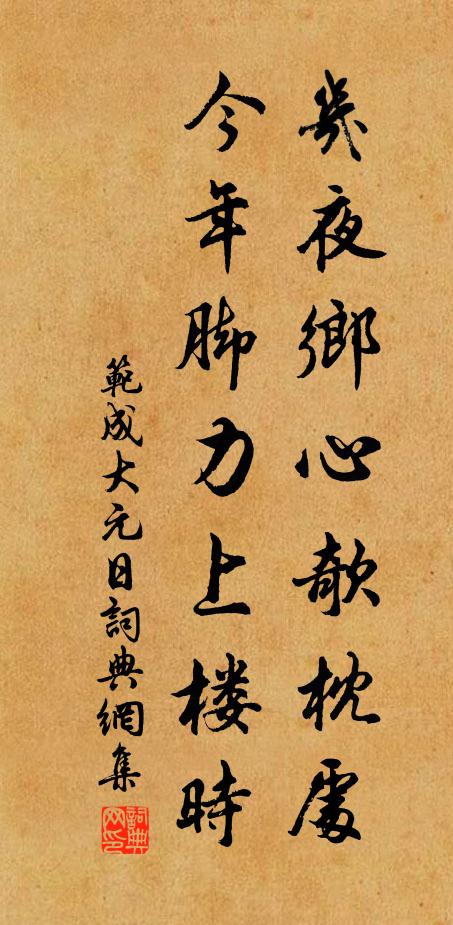 幾夜鄉心欹枕處
今年脚力上楼時
範成大元日詞典網集
詞典网印